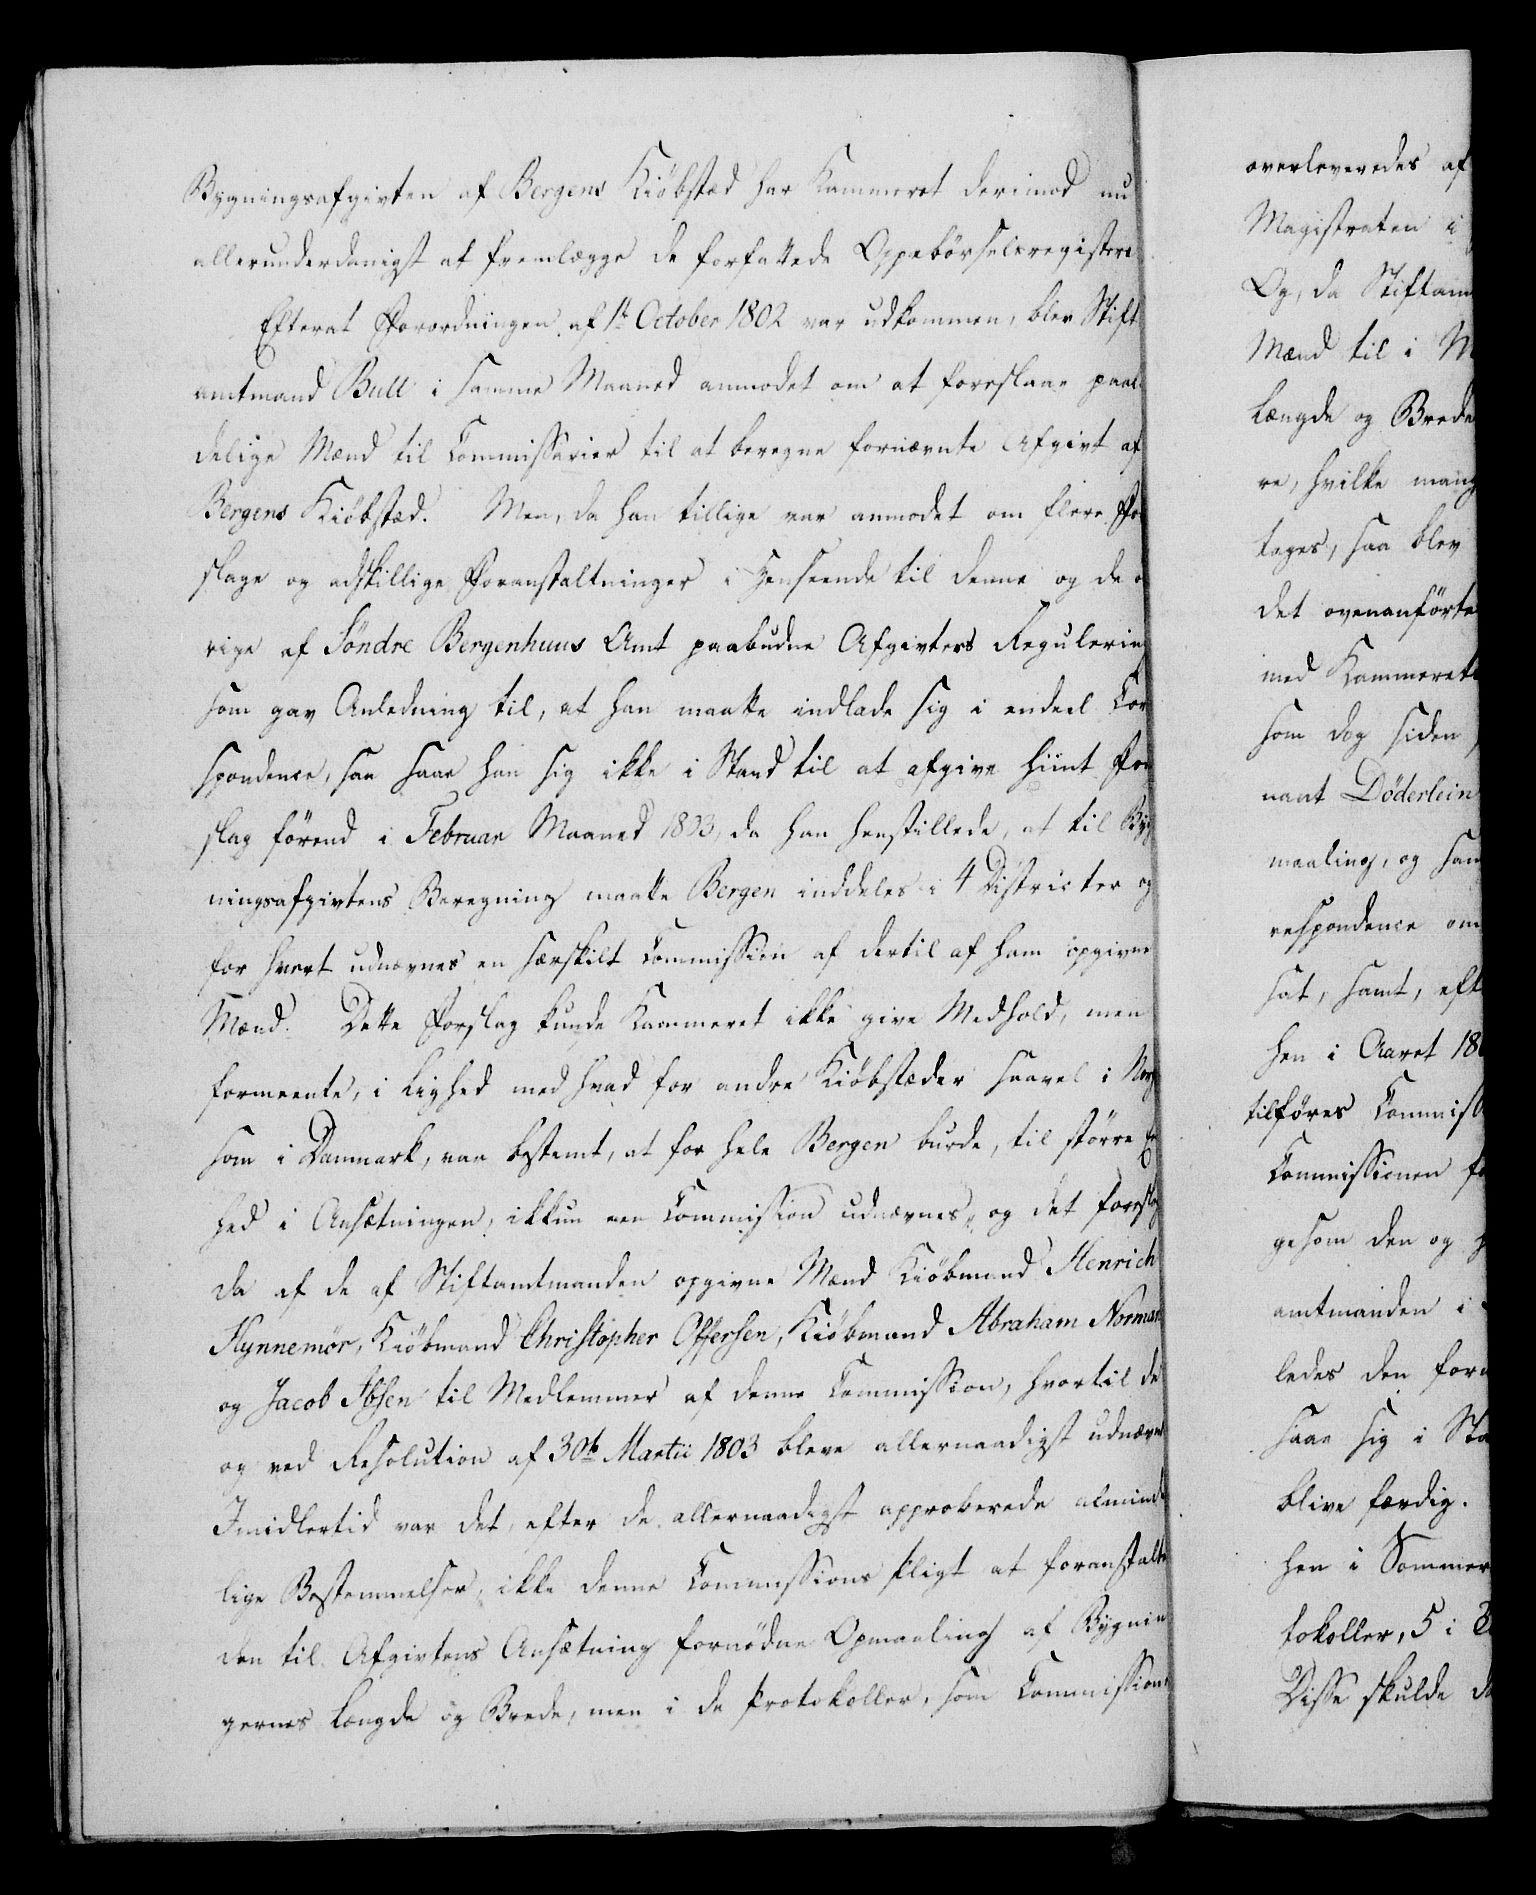 Bygningsafgivten af Bergens Kiöbstæd har Kammeret derimod nu
allerunderdanigst at fremlægge de forfattede Oppebörselsregistere
Efterat Forordningen af 1t October 1802 var udkommen, blev Stift
amtmand Bull i samme Maaned anmodet om at foreslaae paal
delige Mænd til Commissairer til at beregne fornævnte Afgivt af
Bergens Kiöbstæd. Men, da han tillige var anmodet om flere For
slage og adskillige Foranstaltninger i Henseende til denne og de ö
rige af Söndre Bergenhuus Amt paabudne Afgivters Regulering
som gav Anledning til, at han maatte indlade sig i endeel Cor
spondence, saa saae han sig ikke i Stand til at afgive hiint For
slag förend i Februar Maaned 1803, da han henstillede, at til Byg
ningsafgivtens Beregning maatte Bergen inddeles i 4 Districter og
for hvert udnævnes en særskilt Commission af dertil af ham opgivne
Mænd. Dette Forslag kunde Kammeret ikke give Medhold, men
formeente, i Lighed med hvad for andre Kiöbstæder saavel i Norg
som i Danmark, var bestemt, at for hele Bergen burde, til större En
hed i Ansætningen, ikkun een Commission udnævnes, og det foreslog
da af de af Stiftamtmanden opgivne Mænd Kiöbmand Henrich
Hynnemör, Kiöbmand Christopher Offersen, Kiöbmand Abraham Norman
og Jacob Ibsen til Medlemmer af denne Commission, hvortil de
og ved Resolution af 30te Martii 1803 bleve allernaadigst udnævnt
Imidlertid var det, efter de allernaadigst approberede alminde
lige Bestemmelser, ikke denne Commissions Pligt at foranstalte
den til Afgivtens Ansætning fornödne Opmaaling af Bygnin
gernes Længde og Brede, men i de Protokoller, som Commission
overleveredes af
Magistraten i
Og, da Stiftam
Mænd til i M
Længde og Brede
re, hvilke mang
toges, saa blev
det ovenanförte
med Kammerets
som dog siden
nant Döderlein
maaling, og sam
respondence om
sat, samt, eft
hen i Aaret 18
tilföres Commiss
Commissionen f
gesom den og h
amtmanden i
ledes den forn
saae sig i Sta
blive færdig.
hen i Sommer
tokoller, 5 i
Disse skulde d